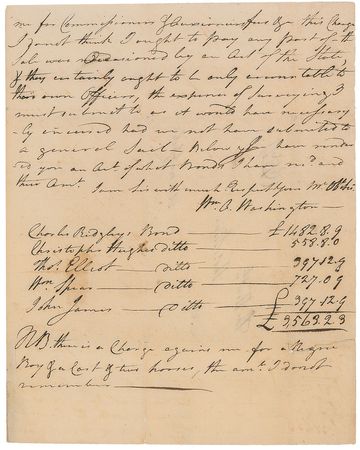 me for Commissioners & Auctioneers fees &c this Charge
I do not think I ought to pay any part of the
Sale was Occasioned by an Act of the State,
& they certainly ought to be only accountable to
their own Officers, the expence of Surveying I
must submit to as it would have necessary
incurred had we not have submitted to
a general Sail - Below I have
you an Act of what Bonds I have red and
their Amt. I am Sir with much Respect your
Wm. A. Washington
Charles Ridgley, Bond £1482.8.9
Christopher Hughes ditto 558.8.0
Thos. Elliot ditto 397.12.9
Wm. Spear ditto 727.0.9
John James ditto 397.12.9
£3563.2.3
NB. there is a Charge against me for a Negroe
Boy & a Cart & two horses, the amt. I do not
remember